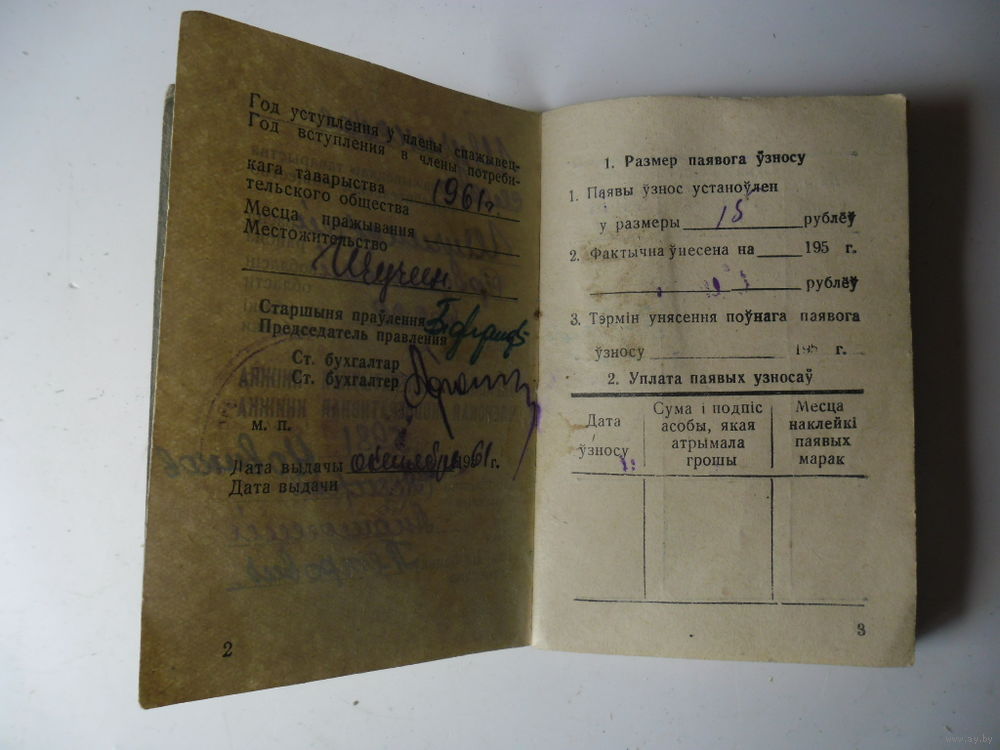 Год уступлення ў члены спажывец-
Год вступления в члены потреби-
кага таварыства
тельского общества
1961г.
Месца пражывання
Местожительство
Щучин
Старшыня праўлення
Председатель правления
Ст. бухгалтар
Ст. бухгалтер
м. п.
Дата выдачы октября 1961г.
Дата выдачи
2
1. Размер паявога ўзносу
1. Паявы ўзнос устаноўлен
у размеры 15 рублёў
2. Фактычна ўнесена на 195 г.
рублёў
3. Тэрмін унясення поўнага паявога
ўзносу 195 г.
2. Уплата паявых узносаў
Дата
ўзносу
Сума і подпіс
асобы, якая
атрымала
грошы
Месца
наклейкі
паявых
марак
3
www.ay.by